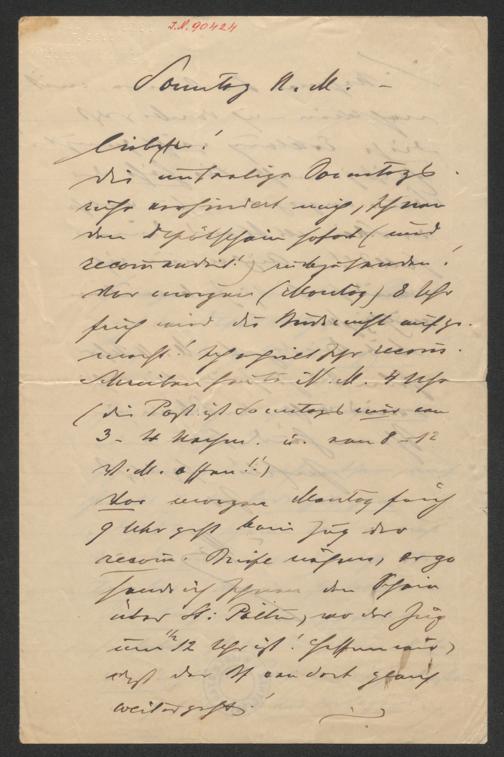 I.N. 90424
Sonntag N. M. –
Liebster!
Die unselige Sonntags-
ruhe verhindert mich, Ihnen
den Depotschein sofort (und
recommandiert!) rückzusenden!
Vor morgen (Montag) 8 Uhr
früh wird die Bude nicht aufge-
macht! Ich erhielt Ihr recom.
Schreiben heute N. M. 4 Uhr
(die Post ist Sonntags nur von
3–4 Nachm. u. von 8–12
V. M. offen!!)
Vor morgen Montag früh
9 Uhr geht kein Zug der
recom. Briefe nähme, ergo
sende ich Ihnen den Schein
über St. Pölten, wo der Zug
um ½ 12 Uhr ist! Hoffen wir,
daß der von dort gleich
weitergeht!